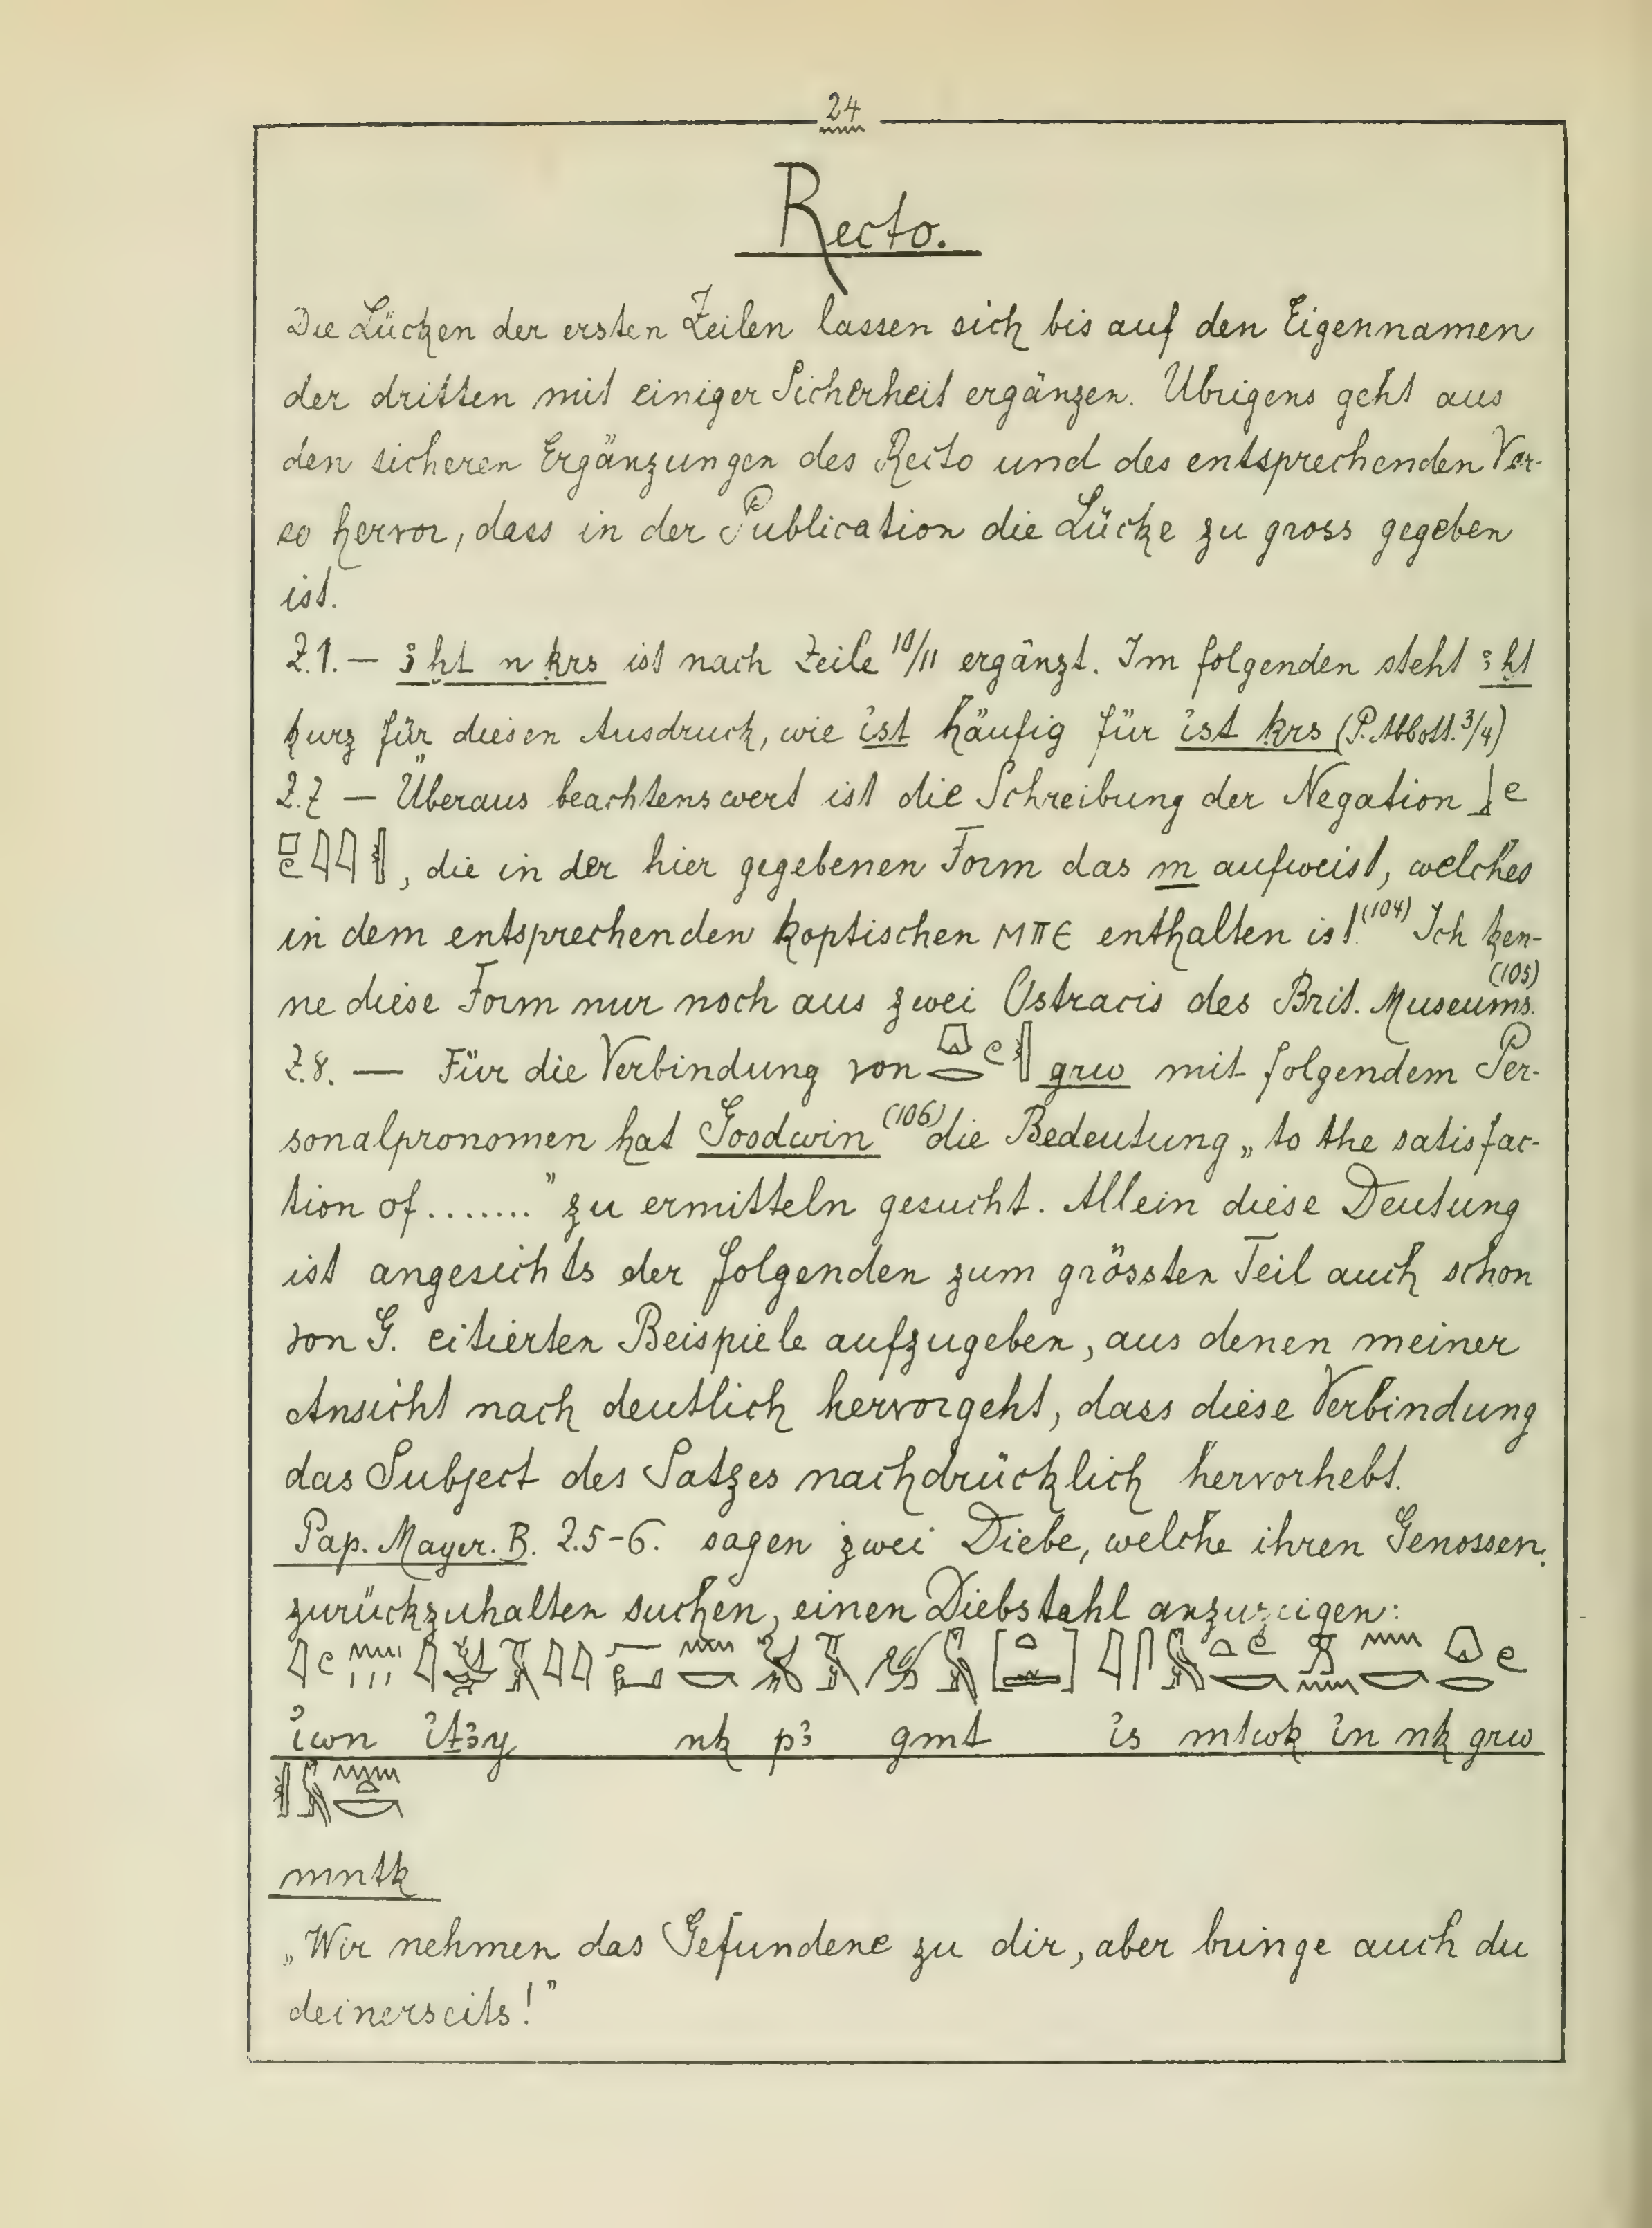 24
Recto.
Die Lücken der ersten Zeilen lassen sich bis auf den Eigennamen
der dritten mit einiger Sicherheit ergänzen. Übrigens geht aus
den sicheren Ergänzungen des Recto und des entsprechenden Ver-
so hervor, dass in der Publication die Lücke zu gross gegeben
ist.
Z.1. — ꜣḫt n ḳrs ist nach Zeile 10/11 ergänzt. Im folgenden steht ꜣḫt
kurz für diesen Ausdruck, wie ist häufig für ist ḳrs (P. Abbott. 3/4)
Z.7 — Überaus beachtenswert ist die Schreibung der Negation
, die in der hier gegebenen Form das m aufweist, welches
in dem entsprechenden koptischen ⲙⲡⲉ enthalten ist.(104) Ich ken-
ne diese Form nur noch aus zwei Ostracis des Brit. Museums.(105)
Z.8. — Für die Verbindung von grw mit folgendem Per-
sonalpronomen hat Goodwin (106) die Bedeutung „to the satisfac-
tion of ......." zu ermitteln gesucht. Allein diese Deutung
ist angesichts der folgenden zum grössten Teil auch schon
von G. citierten Beispiele aufzugeben, aus denen meiner
Ansicht nach deutlich hervorgeht, dass diese Verbindung
das Subject des Satzes nachdrücklich hervorhebt.
Pap. Mayer. B. Z.5-6. sagen zwei Diebe, welche ihren Genossen
zurückzuhalten suchen, einen Diebstahl anzuzeigen:
iwn iṯꜣy nk pꜣ gmt is mtwk in nk grw
mntk
„Wir nehmen das Gefundene zu dir, aber bringe auch du
deinerseits!"